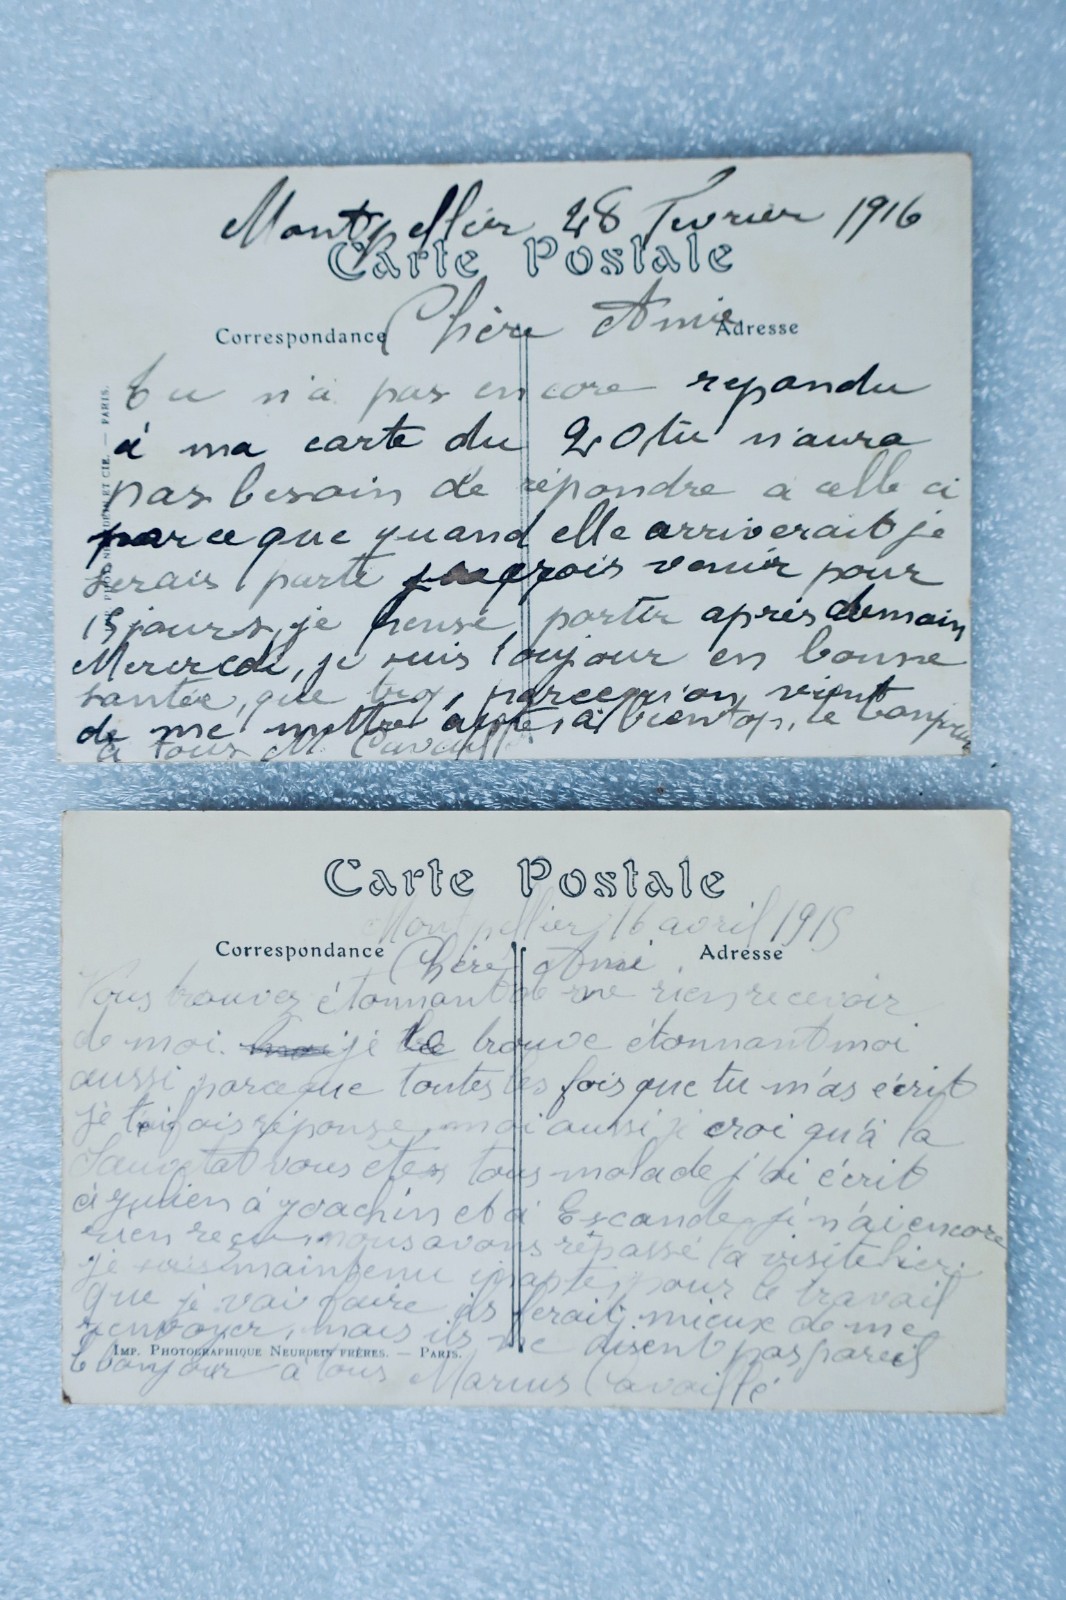 Montpellier 28 Fevrier 1916
Carte Postale
Correspondance
Chère Amie
Adresse
Tu n'a pas encore repondu
à ma carte du 20 tu n'aura
pas besoin de répondre a celle ci
parceque quand elle arriverait je
serais parti crois venir pour
15 jours, je pense partir après demain
Mercredi, je suis toujour en bonne
santée, que trop, parcequ'on vient
de me mettre apte, a bientop, le bonjour
à tous M. Cavaillé
PARIS.
Carte Postale
Montpellier 16 avril 1915
Correspondance
Chère Amie
Adresse
Vous trouvez étonnant de ne rien recevoir
de moi. je le trouve étonnant moi
aussi parceque toutes les fois que tu m'as écrit
je t'ai fais réponse, moi aussi je croi qu'à la
Sauvetat vous êtes tous malade j'ai écrit
à Julien à Joachin et à Escande, je n'ai encore
rien reçu, nous avons répassé la visite hier
je suis maintenu inapte, pour le travail
que je vai faire ils ferait mieux de me
renvoyer, mais ils ne disent pas pareil
IMP. PHOTOGRAPHIQUE NEURDEIN FRÈRES. — PARIS.
le bonjour à tous Marius Cavaillé